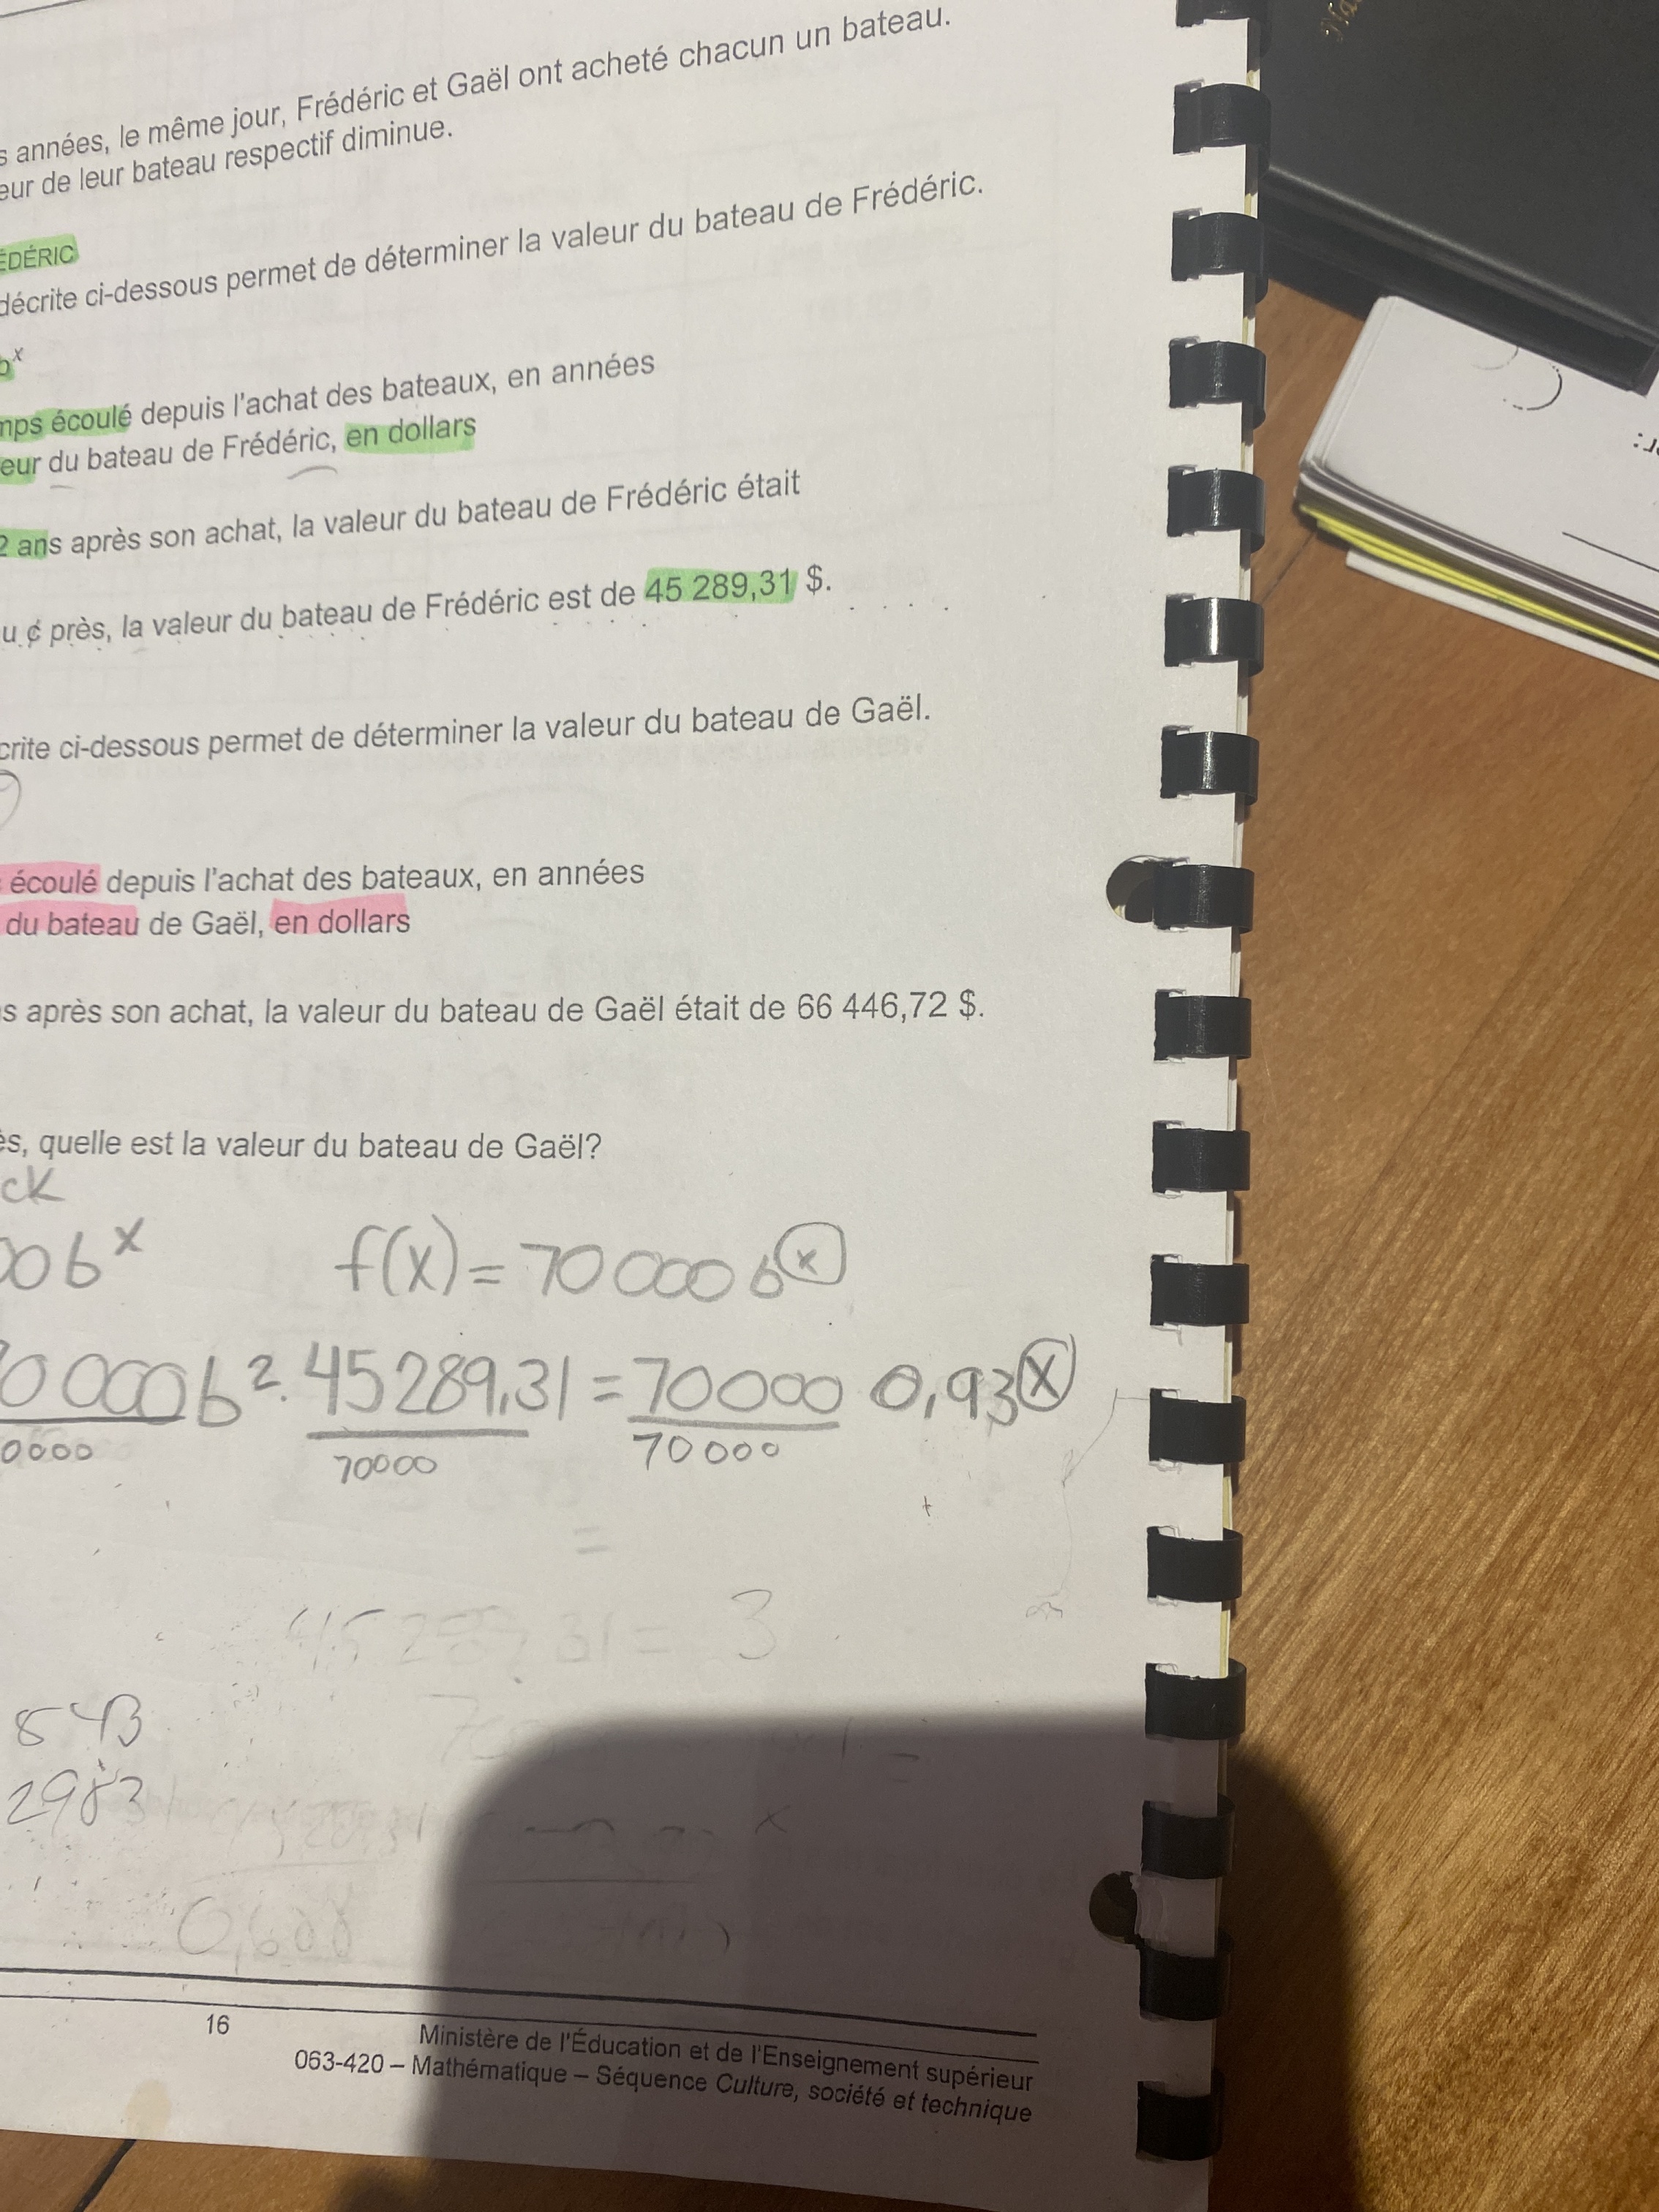 années, le même jour, Frédéric et Gaël ont acheté chacun un bateau.
eur de leur bateau respectif diminue.
ÉDÉRIC
décrite ci-dessous permet de déterminer la valeur du bateau de Frédéric.
b^x
mps écoulé depuis l'achat des bateaux, en années
eur du bateau de Frédéric, en dollars
2 ans après son achat, la valeur du bateau de Frédéric était
u ¢ près, la valeur du bateau de Frédéric est de 45 289,31 $.
crite ci-dessous permet de déterminer la valeur du bateau de Gaël.
écoulé depuis l'achat des bateaux, en années
du bateau de Gaël, en dollars
s après son achat, la valeur du bateau de Gaël était de 66 446,72 $.
ès, quelle est la valeur du bateau de Gaël?
ck
00b^x f(x) = 70 000 b^x
0 000b^2. 45289,31 = 70000 0,93^x
0000 70000 70 000
=
45 289,31 = 3
2983
16
Ministère de l'Éducation et de l'Enseignement supérieur
063-420 – Mathématique – Séquence Culture, société et technique